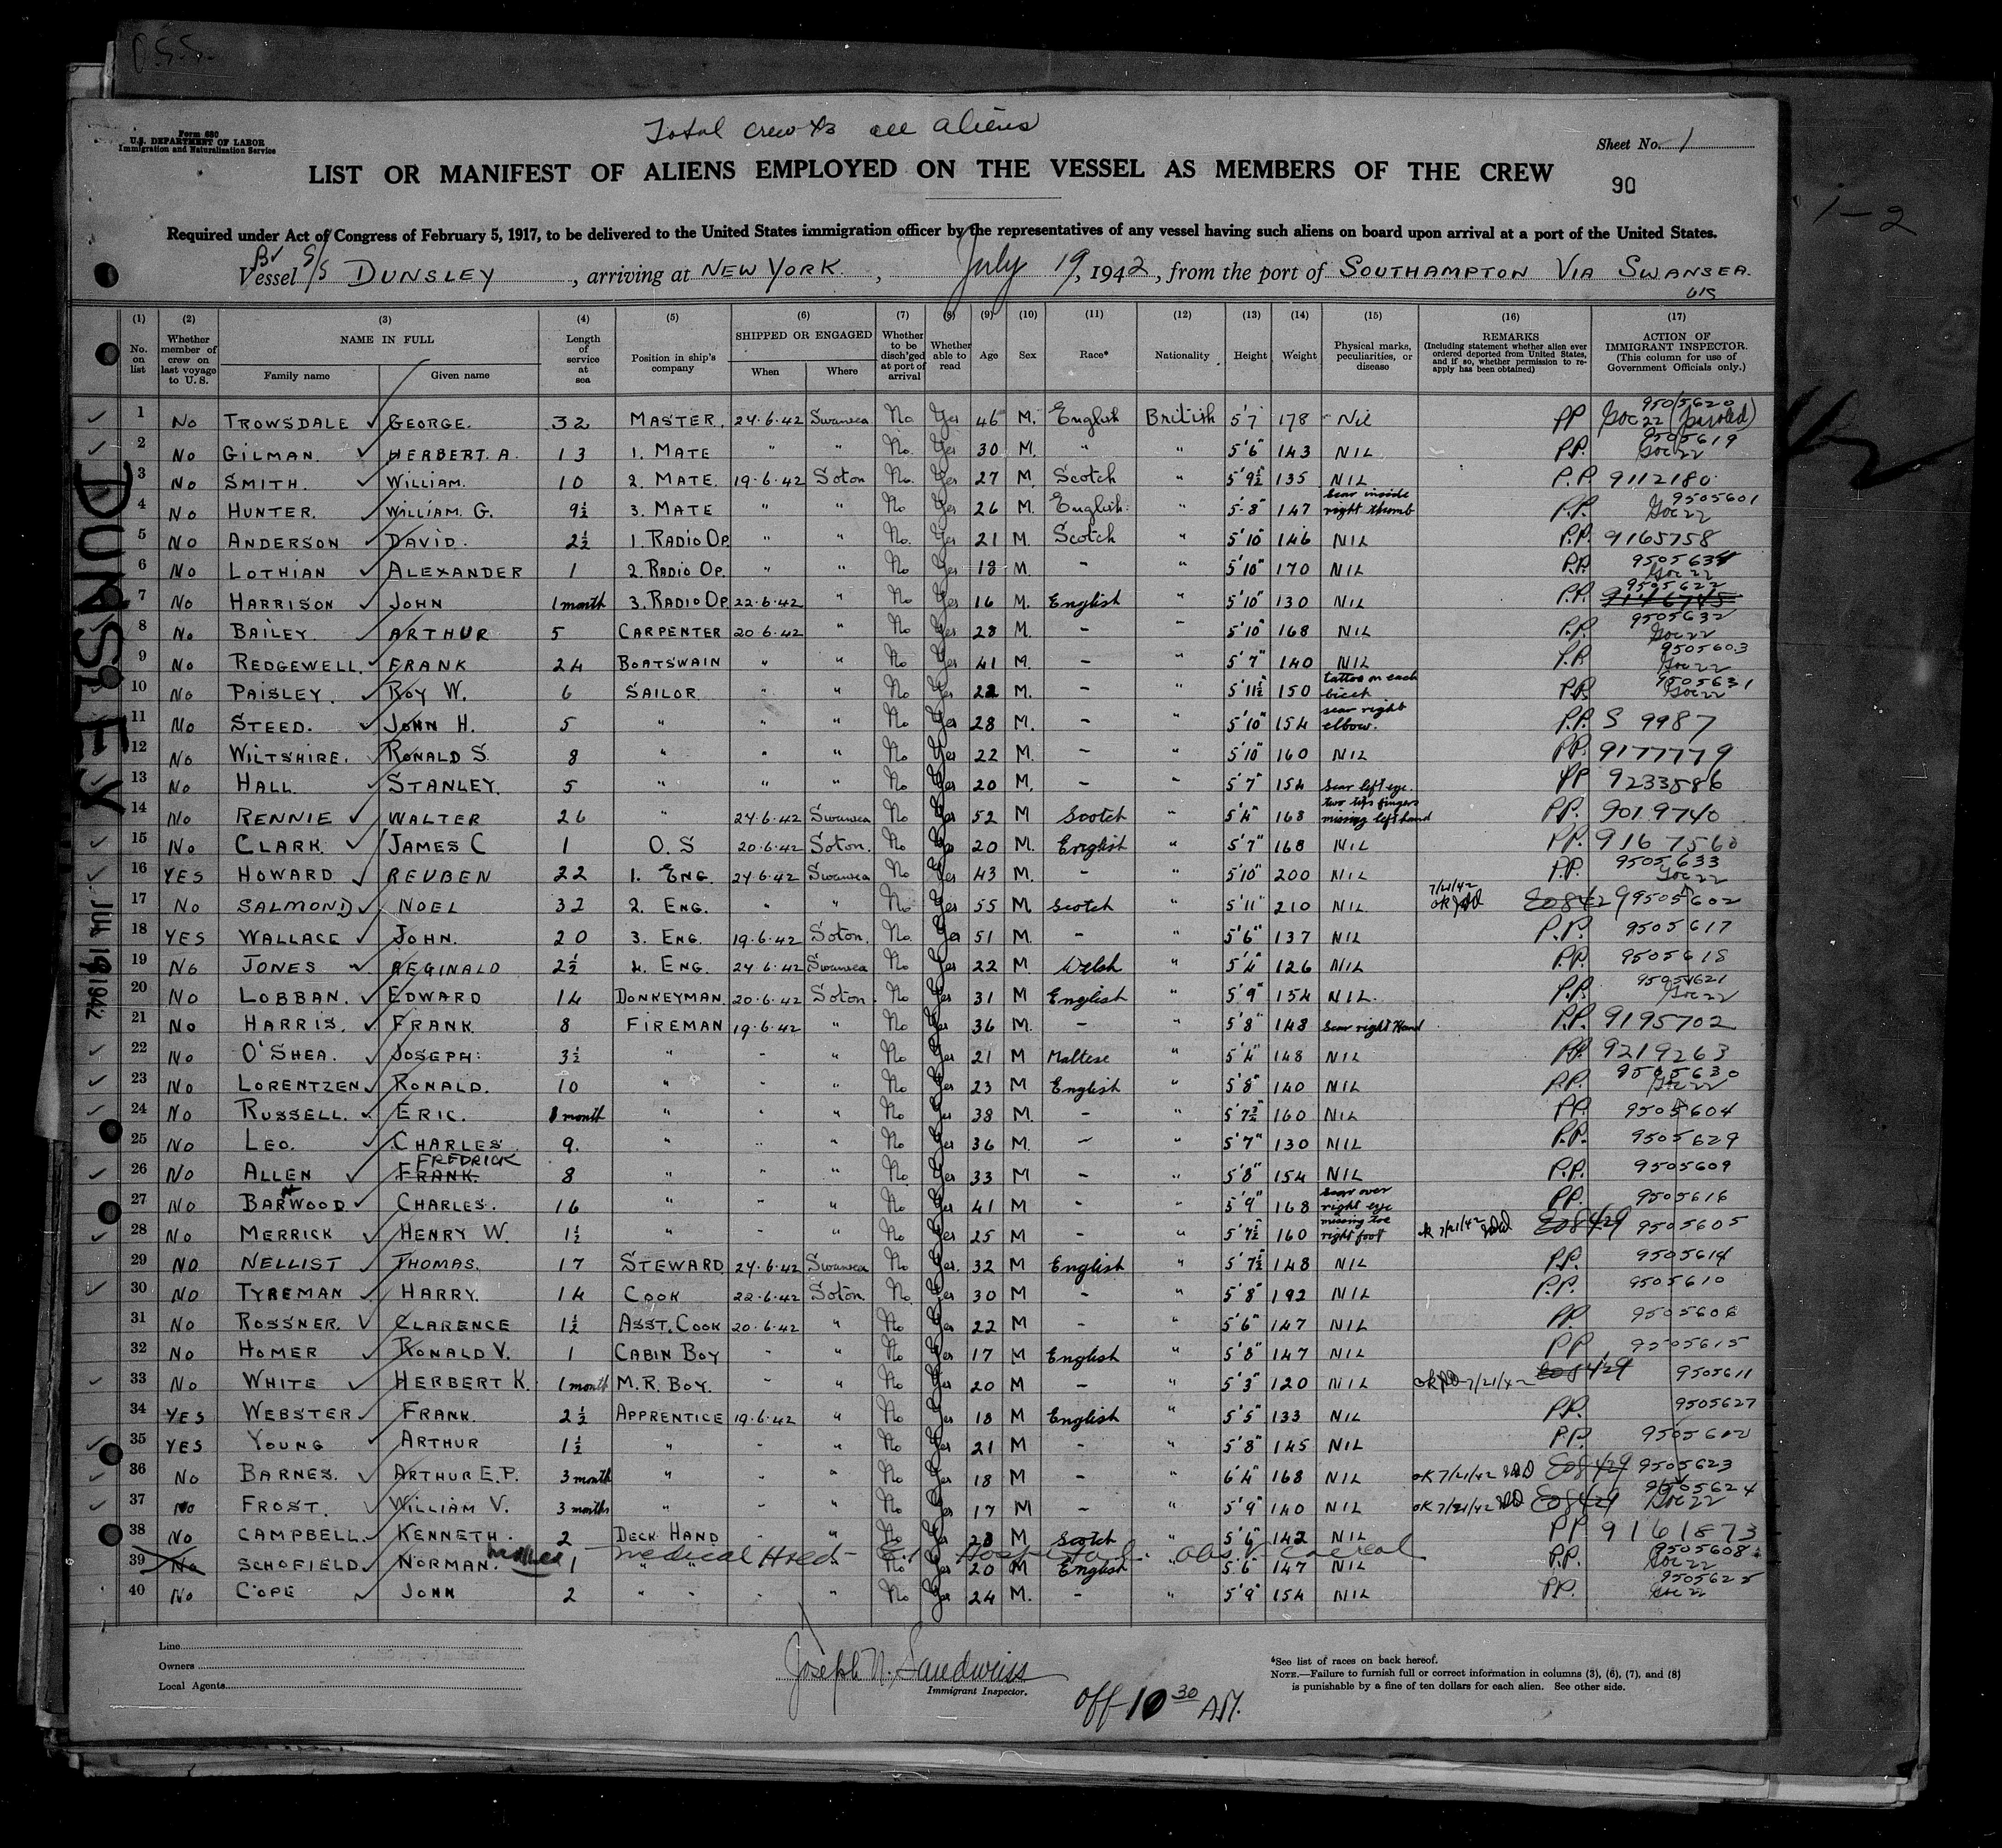 O.S.S.
Total crew 43 all aliens
Form 680
U.S. DEPARTMENT OF LABOR
Immigration and Naturalization Service
Sheet No. 1
LIST OR MANIFEST OF ALIENS EMPLOYED ON THE VESSEL AS MEMBERS OF THE CREW
90
1-2
Required under Act of Congress of February 5, 1917, to be delivered to the United States immigration officer by the representatives of any vessel having such aliens on board upon arrival at a port of the United States.
Br S/S
Vessel S/S DUNSLEY, arriving at NEW YORK, July 19, 1942, from the port of SOUTHAMPTON VIA SWANSEA.
(1) No. on list (2) Whether member of crew on last voyage to U. S. (3) NAME IN FULL Family name Given name (4) Length of service at sea (5) Position in ship's company (6) SHIPPED OR ENGAGED When Where (7) Whether to be disch'ged at port of arrival (8) Whether able to read (9) Age (10) Sex (11) Race* (12) Nationality (13) Height (14) Weight (15) Physical marks, peculiarities, or disease (16) REMARKS (Including statement whether alien ever ordered deported from United States, and if so, whether permission to reapply has been obtained) (17) ACTION OF IMMIGRANT INSPECTOR. (This column for use of Government Officials only.)
1 No TROWSDALE GEORGE. 32 MASTER. 24.6.42 Swansea No Yes 46 M. English British 5'7 178 Nil PP 9505620 (paroled)
2 No GILMAN. HERBERT. A. 13 1. MATE " " No. Yes 30 M. " " 5'6" 143 NIL PP. 9505619
3 No SMITH. WILLIAM. 10 2. MATE. 19.6.42 Soton No. Yes 27 M. Scotch " 5'9½ 135 NIL P.P 9112180
4 No HUNTER. WILLIAM. G. 9½ 3. MATE " " No Yes 26 M. English. " 5-8" 147 scar inside right thumb P.P. 9505601
5 No ANDERSON DAVID. 2½ 1. RADIO OP. " " No. Yes 21 M. Scotch " 5'10" 146 NIL P.P. 9165758
6 No LOTHIAN ALEXANDER 1 2. RADIO OP. " " No Yes 18 M. - " 5'10" 170 NIL P.P.
7 No HARRISON JOHN 1 month 3. RADIO OP. 22.6.42 " No Yes 16 M. English " 5'10" 130 NIL P.P. 9505622 9146745
8 No BAILEY. ARTHUR 5 CARPENTER 20.6.42 " No Yes 28 M. - " 5'10" 168 NIL P.P. 9505632
9 No REDGEWELL. FRANK 24 BOATSWAIN " " No Yes 41 M. - " 5'7" 140 NIL P.P. 9505603
10 No PAISLEY. ROY W. 6 SAILOR " " No Yes 22 M. - " 5'11½ 150 tattoo on each P.P. 9505631
11 No STEED. JOHN H. 5 " " " No Yes 28 M. - " 5'10" 154 scar right elbow. P.P. S 9987
12 No WILTSHIRE. RONALD S. 8 " " " No Yes 22 M. - " 5'10" 160 NIL PP. 9177779
13 No HALL. STANLEY. 5 " " " No Yes 20 M. - " 5'7" 154 scar left eye. PP 9233586
14 No RENNIE WALTER 26 " 24.6.42 Swansea No Yes 52 M Scotch " 5'4" 168 two tips fingers missing left hand PP. 9019740
15 No CLARK. JAMES C 1 O.S 20.6.42 Soton. No Yes 20 M. English " 5'7" 168 NIL PP. 9167560
16 YES HOWARD REUBEN 22 1. ENG. 24.6.42 Swansea No Yes 43 M. - " 5'10" 200 NIL P.P. 9505633
17 No SALMOND NOEL 32 2. ENG. " " No Yes 55 M Scotch " 5'11" 210 NIL 7/21/42 OK EO8429 9505602
18 YES WALLACE JOHN. 20 3. ENG. 19.6.42 Soton. No. Yes 51 M. - " 5'6" 137 NIL P.P. 9505617
19 No JONES REGINALD 2½ 4. ENG. 24.6.42 Swansea No Yes 22 M Welsh " 5'4" 126 NIL P.P. 9505618
20 No LOBBAN. EDWARD 14 DONKEYMAN. 20.6.42 Soton No Yes 31 M English " 5'9" 154 NIL. P.P. 9505621
21 No HARRIS. FRANK 8 FIREMAN 19.6.42 " No Yes 36 M. - " 5'8" 148 scar right Hand P.P. 9195702
22 No O'SHEA. JOSEPH. 3½ " " " No Yes 21 M Maltese " 5'4" 148 NIL PP. 9219263
23 No LORENTZEN RONALD. 10 " " " No Yes 23 M English " 5'8" 140 NIL P.P. 9505630
24 No RUSSELL. ERIC. 8 month " " " No Yes 38 M. - " 5'7½" 160 NIL P.P. 9505604
25 No LEO. CHARLES 9. " " " No Yes 36 M. - " 5'7" 130 NIL P.P. 9505629
26 No ALLEN FREDRICK FRANK. 8 " " " No Yes 33 M - " 5'8" 154 NIL P.P. 9505609
27 No BARWOOD CHARLES. 16 " " " No Yes 41 M - " 5'9" 168 scar over right eye PP. 9505616
28 No MERRICK HENRY W. 1½ " " " No Yes 25 M - " 5'7½ 160 missing toe right foot ok 7/21/42 EO8429 9505605
29 No NELLIST THOMAS. 17 STEWARD 24.6.42 Swansea No Yes. 32 M English " 5'7½ 148 NIL P.P. 9505614
30 No TYREMAN HARRY. 14 COOK 22.6.42 Soton No Yes 30 M - " 5'8" 192 NIL P.P. 9505610
31 No ROSSNER. CLARENCE 1½ ASST. COOK 20.6.42 " No Yes 22 M - " 5'6" 147 NIL PP. 9505606
32 No HOMER RONALD V. 1 CABIN BOY " " No Yes 17 M English " 5'8" 147 NIL PP 9505615
33 No WHITE HERBERT K. 1 month M.R. BOY. " " No Yes 20 M - " 5'3" 120 NIL ok 7/21/42 EO8429 9505611
34 YES WEBSTER FRANK. 2½ APPRENTICE 19.6.42 " No Yes 18 M English " 5'5" 133 NIL PP. 9505627
35 YES YOUNG ARTHUR 1½ " " " No Yes 21 M - " 5'8" 145 NIL P.P. 9505612
36 No BARNES. ARTHUR E.P. 3 month " " " No Yes 18 M - " 6'4" 168 NIL ok 7/21/42 EO8429 9505623
37 No FROST. WILLIAM V. 3 months " " " No Yes 17 M - " 5'9" 140 NIL OK 7/21/42 EO8429 9505624
38 No CAMPBELL. KENNETH. 2 DECK HAND " " No Yes 28 M Scotch " 5'6" 142 NIL PP 9161873
Medical Held Hospital
39 No SCHOFIELD. NORMAN. 1 " " " " No Yes 20 M English " 5.6" 147 NIL P.P. 9505608
40 No COPE JOHN 2 " " " " No Yes 24 M. - " 5'9" 154 NIL PP. 9505625
DUNSLEY
JUL 19 1942
Line
Owners
Local Agents
Joseph N. Sandweiss
Immigrant Inspector.
off 10 30 AM.
*See list of races on back hereof.
NOTE.—Failure to furnish full or correct information in columns (3), (6), (7), and (8)
is punishable by a fine of ten dollars for each alien. See other side.